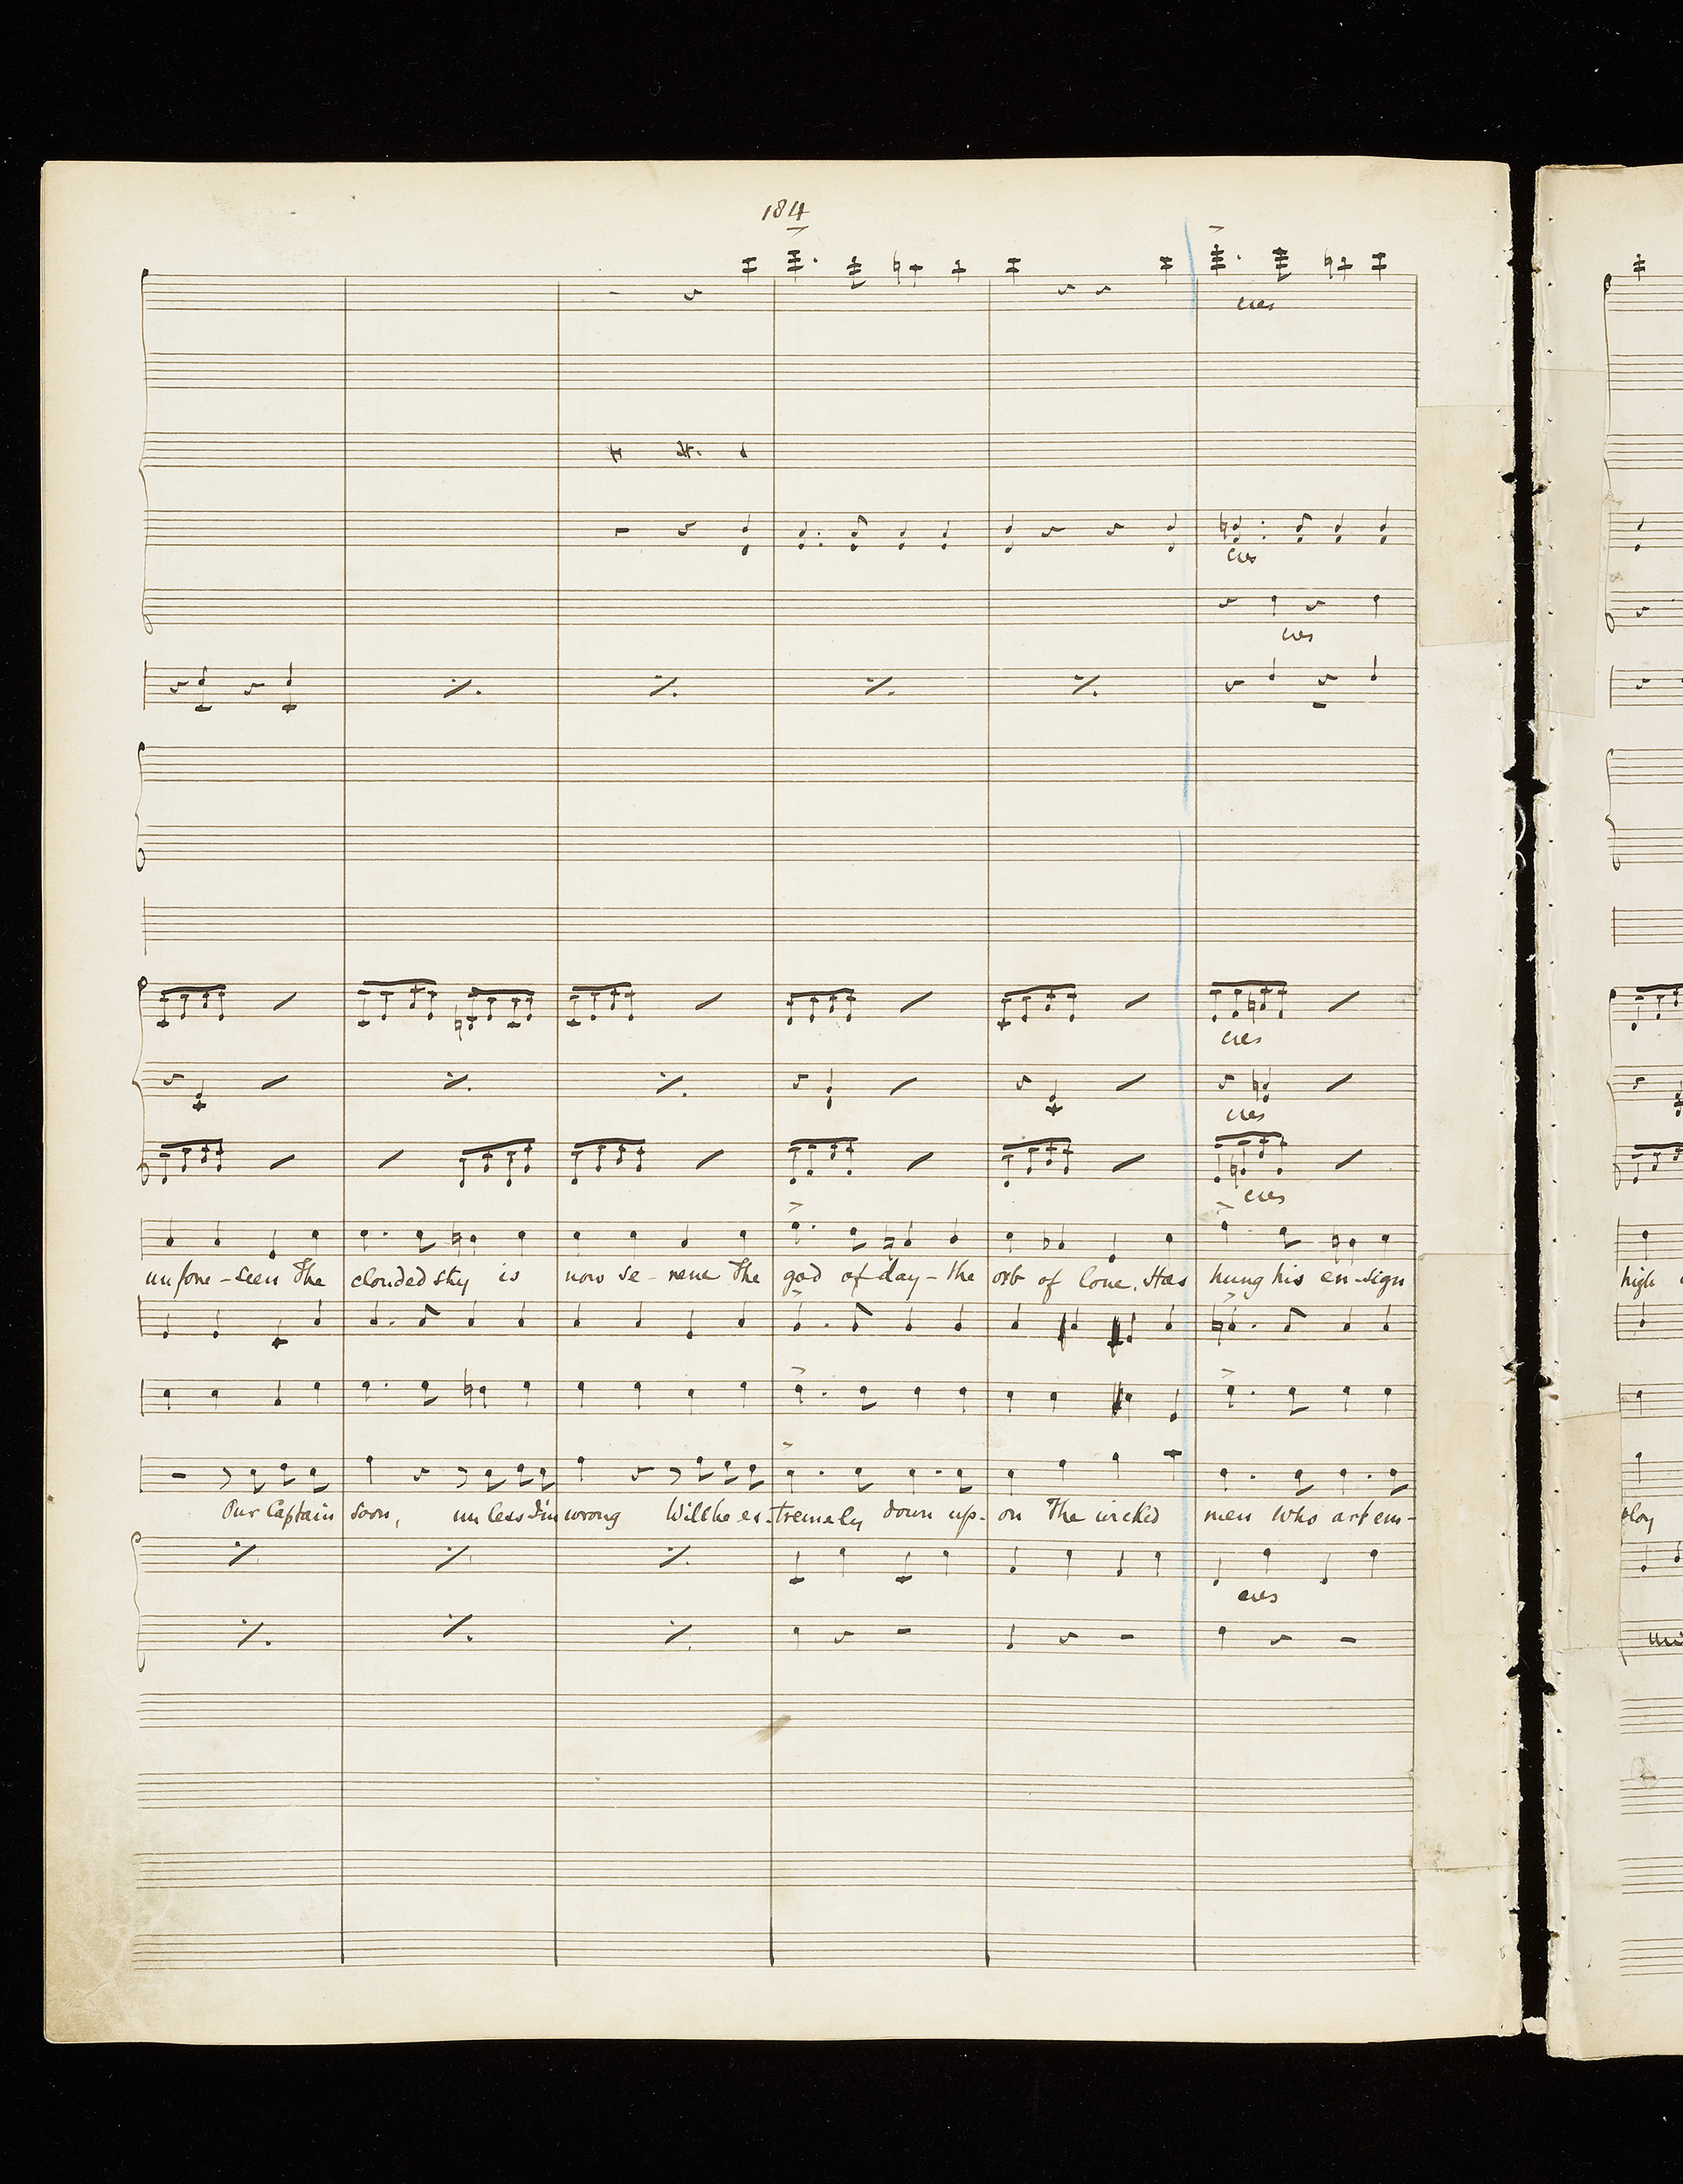 184
cres
cres
cres
cres
cres
cres
unfore-seen The clouded sky is now se-rene The god of day-the orb of love. Has hung his en-sign high
Our Captain soon, unless I'm wrong Will be ex-tremely down up-on The wicked men who art em-ploy
cres